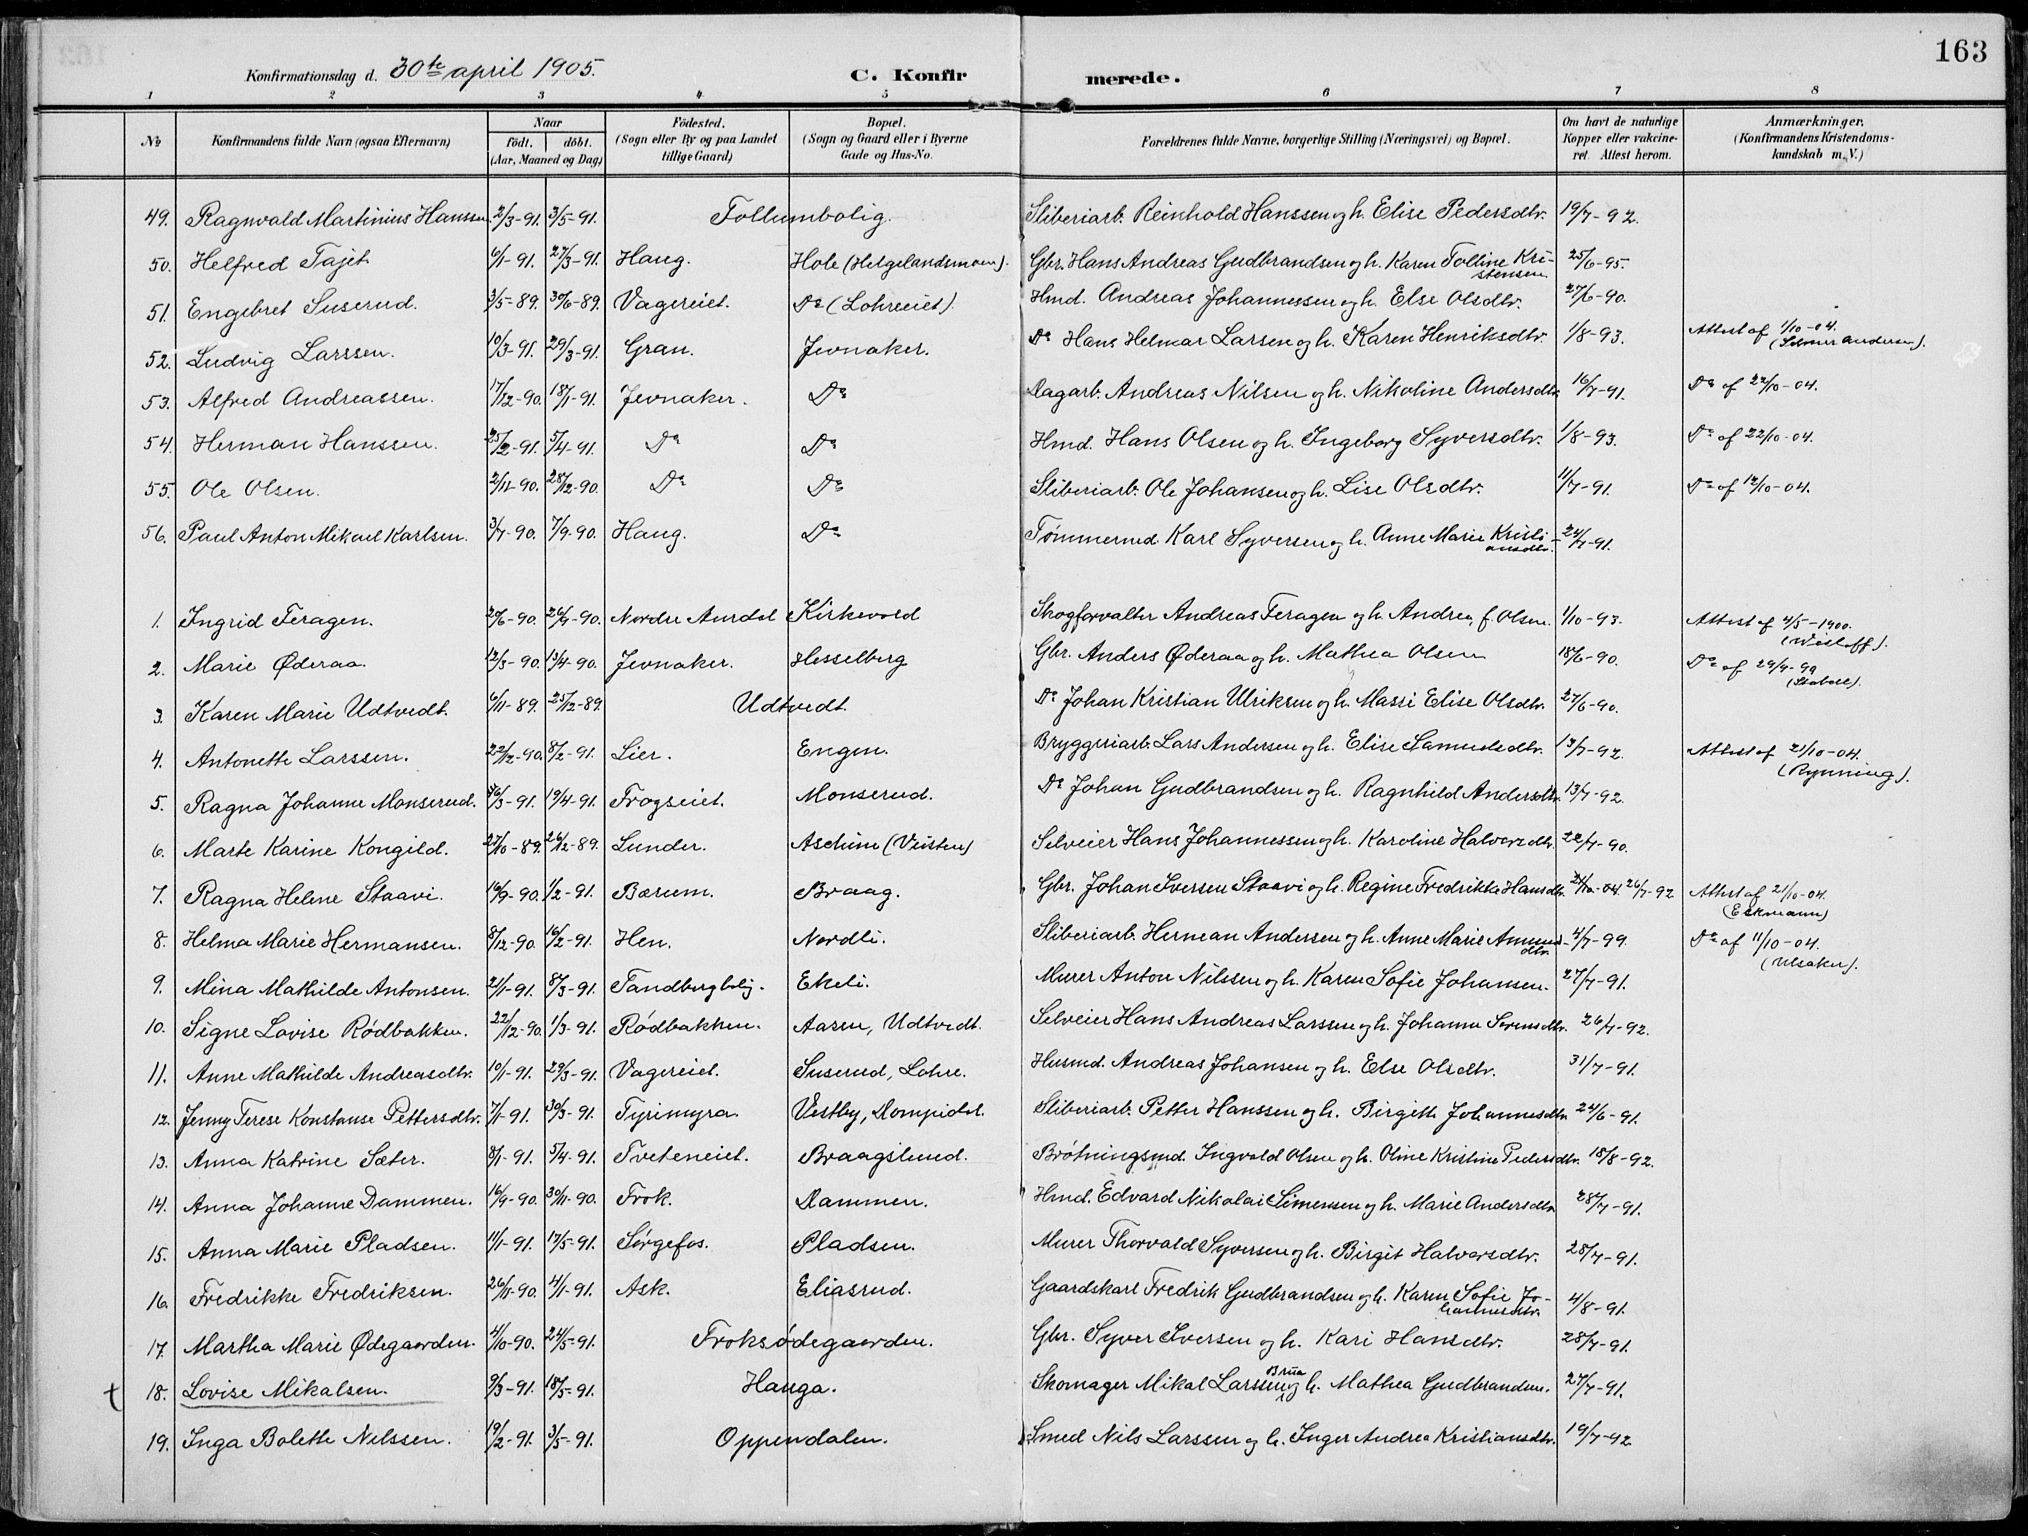 163
Konfirmationsdag d. 30te april 1905. C. Konfir merede.
1 2 3 4 5 6 7 8
No Konfirmandens fulde Navn (ogsaa Efternavn) Naar født. døbt. (Aar, Maaned og Dag) Fødested. (Sogn eller By og paa Landet tillige Gaard) Bopæl. (Sogn og Gaard eller i Byerne Gade og Hus-No. Forældrenes fulde Navne, borgerlige Stilling (Næringsvei) og Bopæl. Om havt de naturlige Kopper eller vakcineret. Attest herom. Anmærkninger. (Konfirmandens Kristendomskundskab m. V.)
49. Ragnvald Martinius Hanssen 2/3-91. 3/5-91. Follumbolig. Sliberiarb. Reinhold Hanssen og h. Elise Pedersdtr. 19/7-92.
50. Helfred Tajet 6/1-91. 27/3-91. Haug. Hole (Helgelandsmoen). Gbr. Hans Andreas Gudbrandsen og h. Karen Tolline Kristensen. 25/6-95.
51. Engebret Suserud. 3/5-89. 30/6-89. Vagereiet. Do (Lohreeiet). Hmd. Andreas Johannessen og h. Else Olsdtr. 27/6-90.
52. Ludvig Larssen. 10/3-91. 29/3-91. Gran. Jevnaker. Do Hans Helmar Larsen og h. Karen Henriksdtr. 1/8-93. Attest af 1/10-04. (Selmer Andersen).
53. Alfred Andreassen. 17/12-90. 18/1-91. Jevnaker. Do Dagarb. Andreas Nilsen og h. Nikoline Andersdtr. 16/7-91. Do af 22/10-04.
54. Herman Hanssen. 25/2-91. 5/4-91. Do Do Hmd. Hans Olsen og h. Ingeborg Syversdtr. 1/8-93. Do af 22/10-04.
55. Ole Olsen. 2/11-90. 28/12-90. Do Do Sliberiarb. Ole Johansen og h. Lise Olsdtr. 11/7-91. Do af 12/10-04.
56. Paul Anton Mikael Karlsen. 3/7-90. 7/9-90. Haug. Do Tømmermd Karl Syversen og h. Anne Marie Kristiansdtr. 24/7-91.
1. Ingrid Feragen. 20/6-90. 26/7-90. Nordre Aurdal Kirkevold Skogforvalter Andreas Feragen og h. Andrea, f. Olsen. 1/10-93. Attest af 4/5-1900. (Wisløff).
2. Marie Øderaa. 12/3-90. 13/4-90. Jevnaker. Hesselberg Gbr. Anders Øderaa og h. Mathea Olsen 18/6-90. Do af 29/9-99
3. Karen Marie Udtvedt. 6/11-89. 25/12-89. Udtvedt. Do Johan Kristian Ulriksen og h. Massi Elise Olsdtr. 27/6-90.
4. Antonette Larssen. 22/12-90. 8/2-91. Lier. Engen. Bryggeriarb. Lars Andersen og h. Elise Samuelsdtr. 13/7-92. Attest af 21/10-04. (Rynning).
5. Ragna Johanne Monserud. 16/3-91. 19/4-91. Frogseiet. Monserud. Do Johan Gudbrandsen og h. Ragnhild Andersdtr. 13/7-92.
6. Marte Karine Kongild. 27/10-89. 26/12-89. Lunder. Aschim (Veisten) Selveier Hans Johannessen og h. Karoline Halvorsdtr. 22/7-90.
7. Ragna Helene Staavi. 16/9-90. 1/2-91. Bærum. Braag. Gbr. Johan Iversen Staavi og h. Regine Fredrikke Hansdtr. 21/10-04. 26/7-92 Attest af 21/10-04. (Eckmann)
8. Helma Marie Hermansen. 8/12-90. 16/2-91. Hen. Nordli. Sliberiarb. Herman Andersen og h. Anne Marie Amundsdtr. 4/7-99. Do af 11/10-04. (Ulsaker).
9. Mina Mathilde Antonsen. 21/1-91. 8/3-91. Tandbergbolig. Ekeli. Murer Anton Nilssen og h. Karen Sofie Johansen. 27/7-91.
10. Signe Lovise Rødbakken. 22/12-90. 1/3-91. Rødbakken. Aasen, Udtvedt. Selveier Hans Andreas Larssen og h. Johanne Sørensdtr. 26/7-92.
11. Anne Mathilde Andreasdtr. 10/1-91. 29/3-91. Vagereiet. Suserud, Lohre. Husmd. Andreas Johansen og h. Else Olsdtr. 31/7-91.
12. Jenny Terese Konstanse Pettersdtr. 7/1-91. 30/3-91. Tyrimyra. Vestby, Dompidal. Sliberiarb. Petter Hanssen og h. Birgitte Johannesdtr. 24/6-91.
13. Anna Katrine Sæter. 8/1-91. 5/4-91. Tveteneiet. Braagslund. Brøtningsmd. Ingvald Olsen og h. Oline Kristine Pedersdtr. 18/8-92.
14. Anna Johanne Dammen. 16/9-90. 30/11-90. Frok. Dammen. Hmd. Edvard Nikolai Simensen og h. Marie Andersdtr. 28/7-91.
15. Anna Marie Pladsen. 11/1-91. 17/5-91. Sørgefos. Pladsen. Murer Thorvald Syversen og h. Birgit Halvorsdtr. 28/7-91.
16. Fredrikke Fredriksen. 26/11-90. 4/1-91. Ask. Eliasrud. Gaardskarl Fredrik Gudbrandsen og h. Karen Sofie Johannesdtr. 4/8-91.
17. Martha Marie Ødegaarden. 4/10-90. 24/5-91. Froksødegaarden. Gbr. Syver Iversen og h. Kari Hansdtr. 28/7-91.
† 18. Lovise Mikalsen. 9/3-91. 18/5-91. Hauga. Skomager Mikal Larssen Brua og h. Mathea Gudbrandsen. 27/7-91.
19. Inga Bolette Nilssen. 19/2-91. 3/5-91. Oppendalen. Smed Nils Larssen og h. Inger Andrea Kristiansdtr. 19/7-92